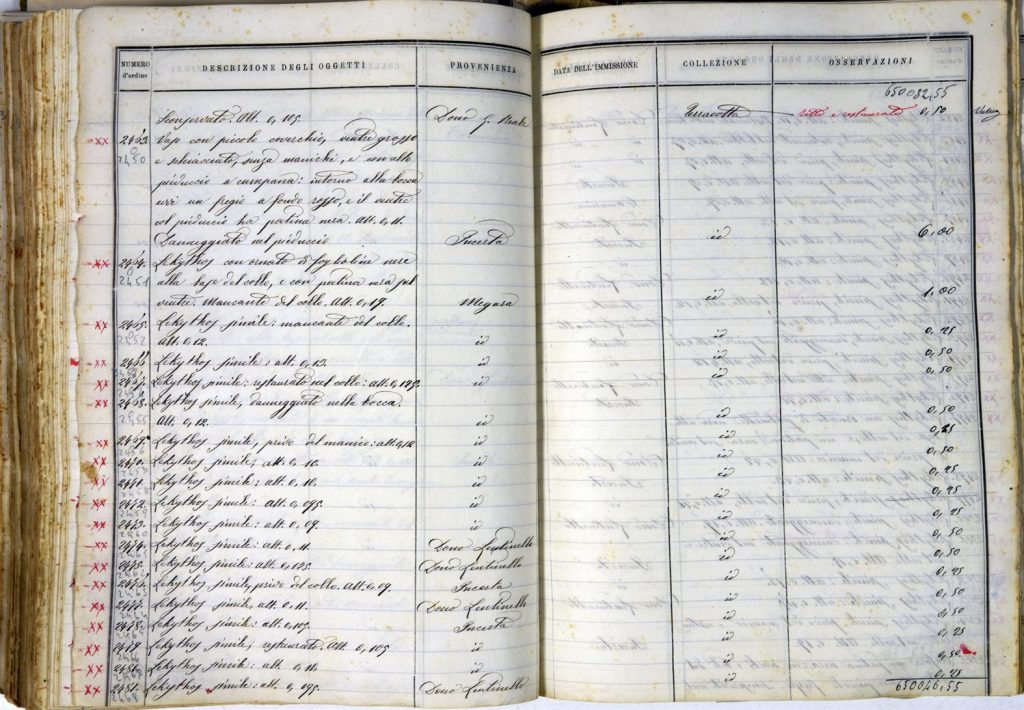 NUMERO d'ordine DESCRIZIONE DEGLI OGGETTI PROVENIENZA DATA DELL'IMMISSIONE COLLEZIONE OSSERVAZIONI
650032,55
Conservato. Alt. 0,105. Dono Terracotta rotto e restaurato 0,50
xx 2463. Vaso con piccolo coverchio, ventre grosso
2450 e schiacciato, senza manichi, e con alto
pieduccio a campana: intorno alla bocca
un fregio a fondo rosso, e il ventre
col pieduccio ha patina nera. Alt. 0,11.
Danneggiato nel pieduccio Incerta id 6,00
xx 2464. Lekythos con ornato di foglioline nere
2451 alla base del collo, e con patina nera sul
ventre. Mancante del collo. Alt. 0,19. Megara id 1,00
xx 2465. Lekythos simile: mancante del collo.
2452 Alt. 0,12. id id 0,25
xx 2466. Lekythos simile: alt. 0,13. id id 0,50
xx 2467. Lekythos simile: restaurato nel collo: alt. 0,125. id id 0,50
xx 2468. Lekythos simile, danneggiato nella bocca.
2455 Alt. 0,12. id id 0,50
xx 2469. Lekythos simile, privo del manico: alt. 0,12 id id 0,25
xx 2470. Lekythos simile, alt. 0,10. id id 0,50
xx 2471. Lekythos simile: alt. 0,10. id id 0,25
xx 2472. Lekythos simile: alt. 0,095. id id 0,25
xx 2473. Lekythos simile: alt. 0,09. id id 0,25
xx 2474. Lekythos simile: alt. 0,11. Dono Lentinello id 0,50
xx 2475. Lekythos simile: alt. 0,125. Dono Lentinello id 0,50
xx 2476. Lekythos simile, privo del collo. Alt. 0,09. Incerta id 0,25
xx 2477. Lekythos simile, alt. 0,11. Dono Lentinello id 0,50
xx 2478. Lekythos simile: alt. 0,105. Incerta id 0,50
xx 2479. Lekythos simile, restaurato. Alt. 0,105 id id 0,25
xx 2480. Lekythos simile: alt. 0,11. id id 0,50
xx 2481. Lekythos simile: alt. 0,095. Dono Lentinello id 0,25
650046,55